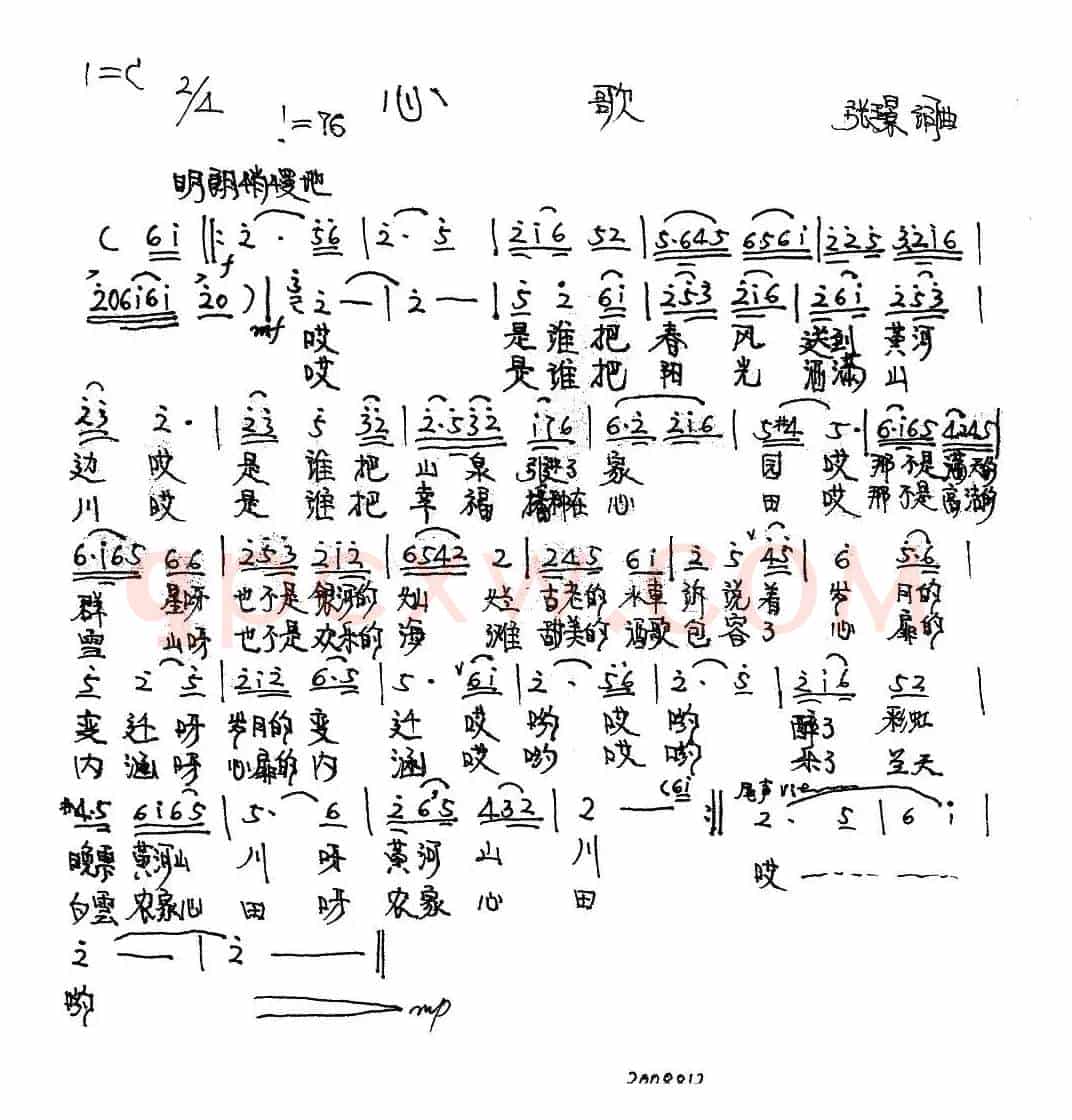 1=C 2/4 ♩=76 心 歌 张璟 词曲
明朗稍慢地
( 6i ‖: 2 · 56 | 2 · 5 | 2i6 52 | 5·645 656i | 225 32i6 |
f
206i6i 20 ) | 3 2 — | 2 — | 5 2 6i | 253 2i6 | 26i 253 |
mf
哎 是谁把春风送到黄河
哎 是谁把阳光洒满山
23 2· | 23 5 32 | 2·532 i76 | 6·2 2i6 | 5#4 5· | 6·i65 4245 |
边哎是谁把山泉引进了家园哎那不是满天的
川哎是谁把幸福播种在心田哎那不是高洁的
6·i65 66 | 253 2i2 | 6542 2 | 245 6i | 2 5 45 | 6 5·6 |
群星呀也不是银河的灿烂古老的水車诉说着岁月的
雪山呀也不是欢乐的海滩甜美的酒歌包容了心扉的
5 2 5 | 2i2 6·5 | 5· 6i | 2 · 56 | 2 · 5 | 2i6 52 |
变迁呀岁月的变迁哎哟哎哟醉了彩虹
内涵呀心扉的内涵哎哟哎哟乐了兰天
#4·5 6i65 | 5· 6 | 2 6 5 432 | 2 — (6i :‖ 尾声 2· 5 | 6 i |
晚霞黄河山川呀黄河山川
哎 — — —
白雲农家心田呀农家心田
2 — | 2 — ‖
哟
mp
qpcxw.COM